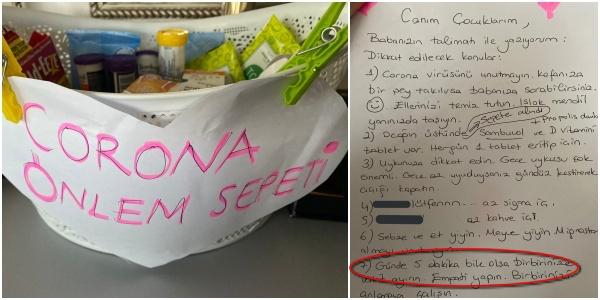 CORONA
ÖNLEM SEPETİ
Canım Çocuklarım,
Babanızın talimatı ile yazıyorum:
Dikkat edilecek konular:
1) Corona virüsünü unutmayın. Kafanıza
bir şey takılırsa babanıza sorabilirsiniz.
Ellerinizi temiz tutun. Islak mendil
yanınızda taşıyın.
Sepete alındı
+ Propolis
2) Ocağın üstünde Sambucol ve D vitamini
tablet var. Hergün 1 tablet eritip için.
3) Uykunuza dikkat edin. Gece uykusu çok
önemli. Gece az uyuduysanız gündüz kestirerek
açığı kapatın.
4) lütfennn... az sigara iç.
5) az kahve iç!
6) Sebze ve et yiyin. Meyve yiyin
7) Günde 5 dakika bile olsa birbirinize
ayırın. Empati yapın. Birbirinizi
anlamaya çalışın.